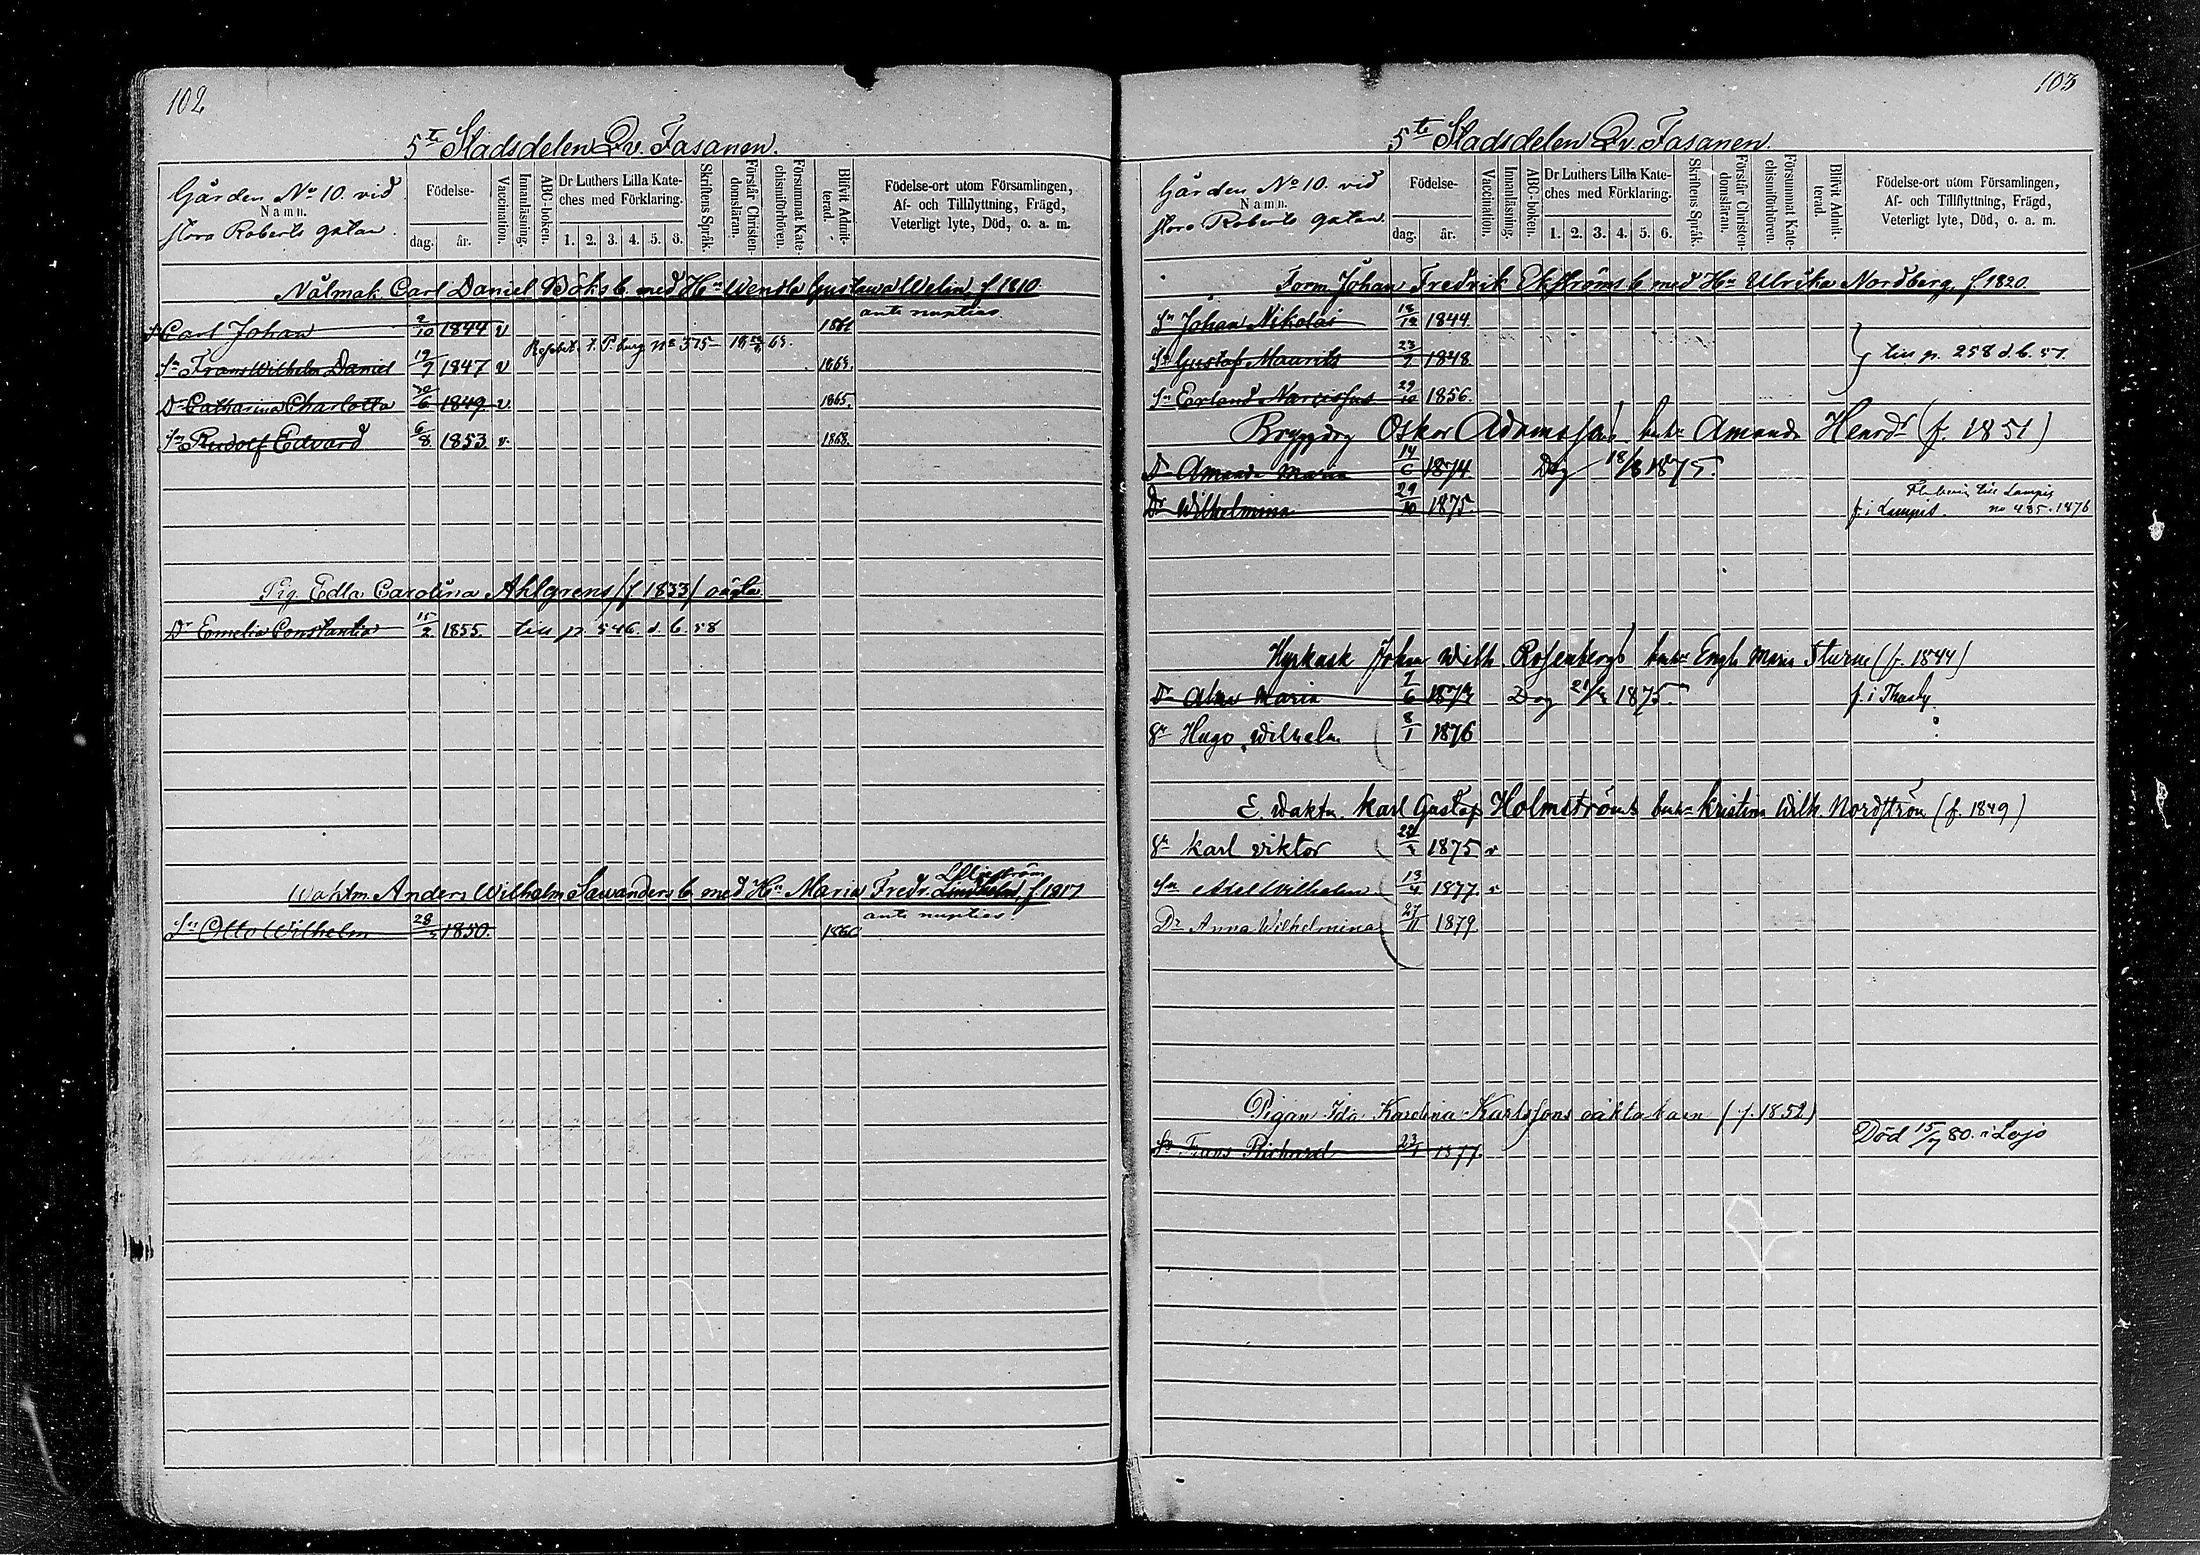 102
5te Stadsdelen Qv. Fasanen.
Gården No 10. vid
Namn.
stora Roberts gatan.
Födelse-
dag. år.
Vaccination.
Innanläsning.
ABC-boken.
Dr Luthers Lilla Kate-
ches med Förklaring.
1. 2. 3. 4. 5. 6.
Skriftens Språk.
Förstår Christen-
domsläran.
Försummat Kate-
chismiförhören.
Blifvit Admit-
terad.
Födelse-ort utom Församlingen,
Af- och Tillflyttning, Frägd,
Veterligt lyte, Död, o. a. m.
Nålmak. Carl Daniel Böks b. med Hn Wendla Gustava Welin, f 1810
ante nuptias
Sn Carl Johan 2/10 1844 v 1861
Betebt. t. P.burg No 375
Sn Frans Wilhelm Daniel 19/7 1847 v 1864.
Dr Catharina Charlotta 30/6 1849 v. 1865.
Sn Rudolf Edvard 6/8 1853 v. 1868.
Pig. Edla Carolina Ahlgrens (f 1833) oägta
Dr Emelia Constantia 15/2 1855. till p. 546. d. b. 58
Waktm. Anders Wilhelm Sawanders b. med Hn Maria Fredr. f 1817
ante nuptias
Sn Otto Wilhelm 28/3 1850. 1866
103
5te Stadsdelen Qv. Fasanen.
Gården No 10. vid
Namn.
stora Roberts gatan.
Födelse-
dag. år.
Vaccination.
Innanläsning.
ABC-boken.
Dr Luthers Lilla Kate-
ches med Förklaring.
1. 2. 3. 4. 5. 6.
Skriftens Språk.
Förstår Christen-
domsläran.
Försummat Kate-
chismiförhören.
Blifvit Admit-
terad.
Födelse-ort utom Församlingen,
Af- och Tillflyttning, Frägd,
Veterligt lyte, Död, o. a. m.
Form. Johan Fredrik Ekströms b. med Hn Ulrika Nordberg, f 1820.
Sn Johan Nikolai 18/12 1844.
Sn Gustaf Maurits 23/9 1848. till p. 258 d. b. 57.
Sn Erland Narcissus 29/10 1856.
Bryggdrg Oskar Adamssons Amanda Henrdr (f. 1851)
Dr Amanda Maria 14/6 1874. Dog 18/8 1875.
till Lampis
Dr Wilhelmina 29/10 1875. f. i Lampis. no 485. 1876
Hyrkusk Johan Wilh. Rosenbergs Engla Maria Sture (f. 1844)
Dr Alma Maria 7/6 Dog 1875. f. i Thusby.
Sn Hugo Wilhelm 8/1 1876
E. Vaktm. Karl Gustaf Holmströms Kristina Wilh. Nordström (f. 1849)
Sn Karl Viktor 1875 v
Sn Axel Wilhelm 13/4 1877. v
Dr Anna Wilhelmina 27/11 1879
Pigan Ida Karolina Karlssons oäkta barn (f. 1852)
Sn Frans Richard 23/1 1877. Död 15/7 80. i Lojo